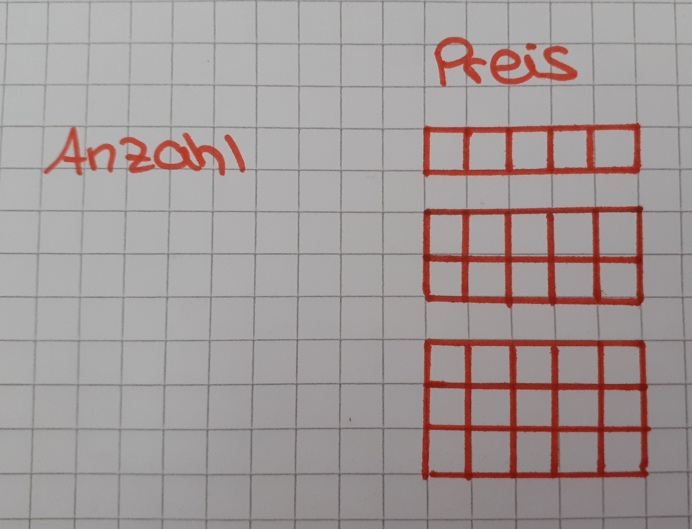 Preis
Anzahl